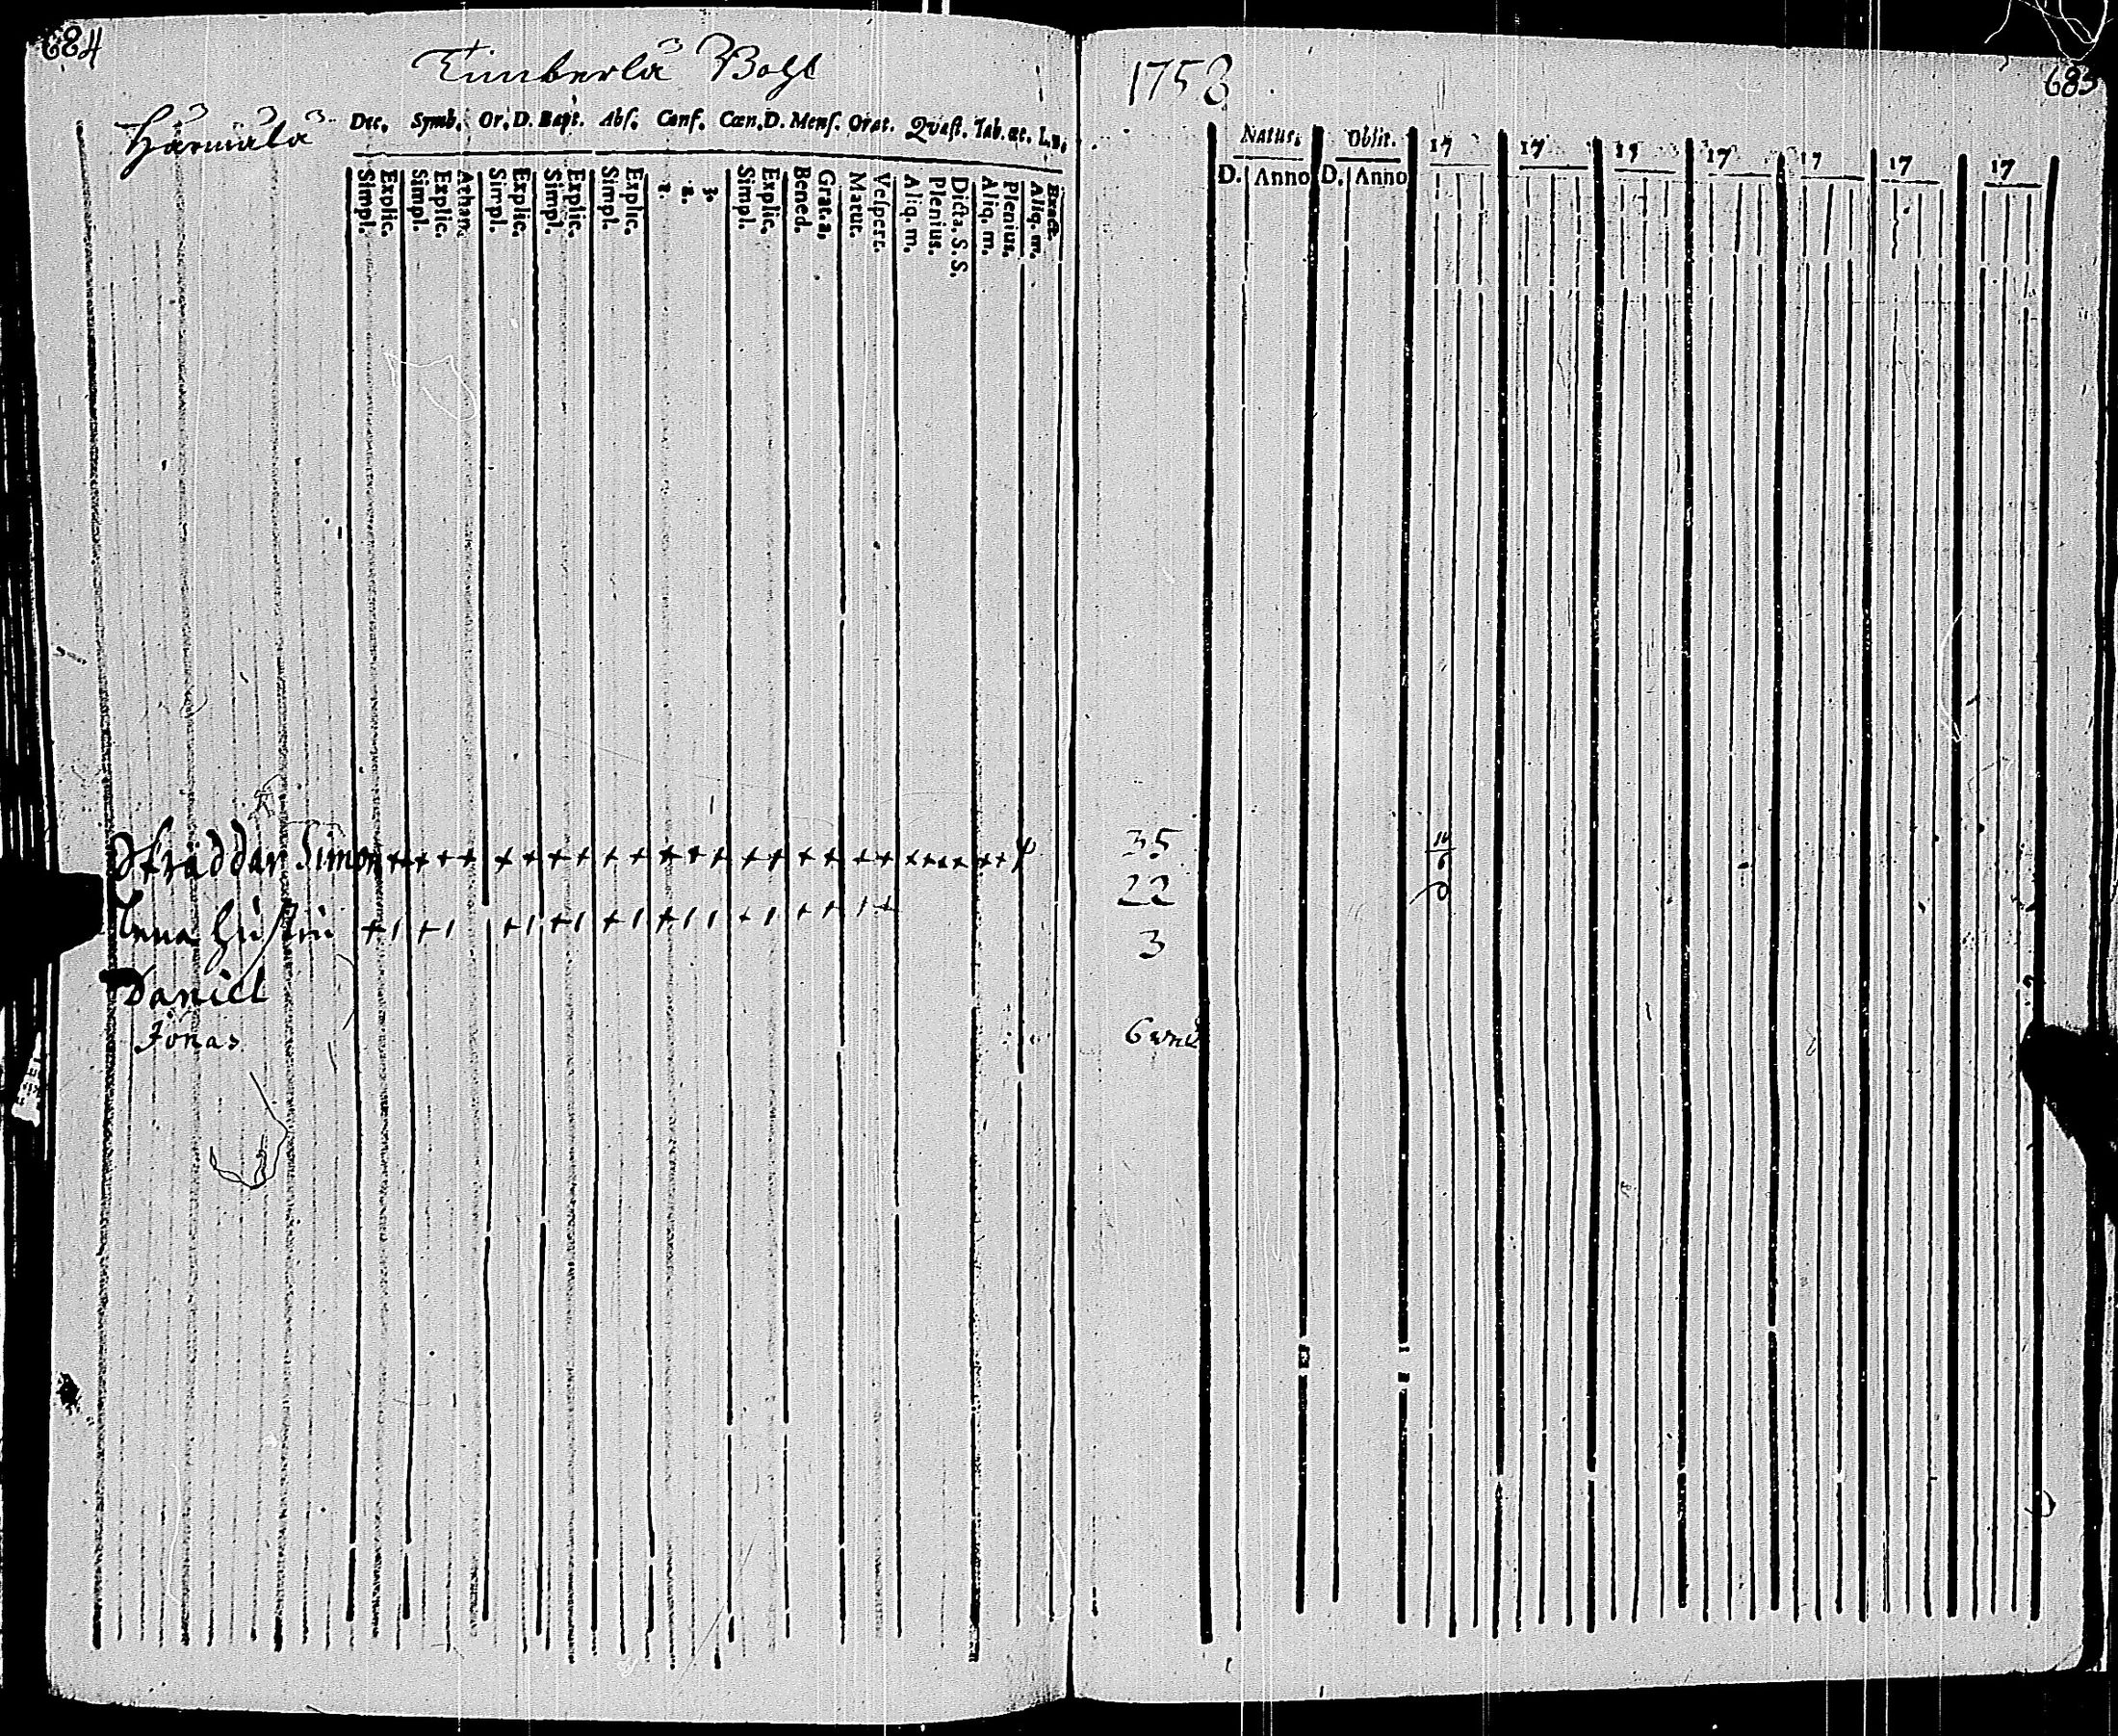 684
Timberlå Bohl
Hårmålå
Dec. Symb. Or. D. Bapt. Abs. Conf. Cœn. D. Mens. Orat. Qvæst. Tab. œc. L. n.
Simpl. Explic. Simpl. Explic. Athan. Simpl. Explic. Simpl. Explic. Simpl. Explic. 1. 2. 3. Simpl. Explic. Bened. Grat. a. Matut. Vespert. Aliq. m. Plenius. Dicta. S. S. Aliq. m. Plenius. Aliq. m. Exact.
Skräddar Simon
Hustru
Daniel
Jonas
1753
685
Natus. Obiit. 17 17 17 17 17 17 17
D. Anno D. Anno
35
22
3
6